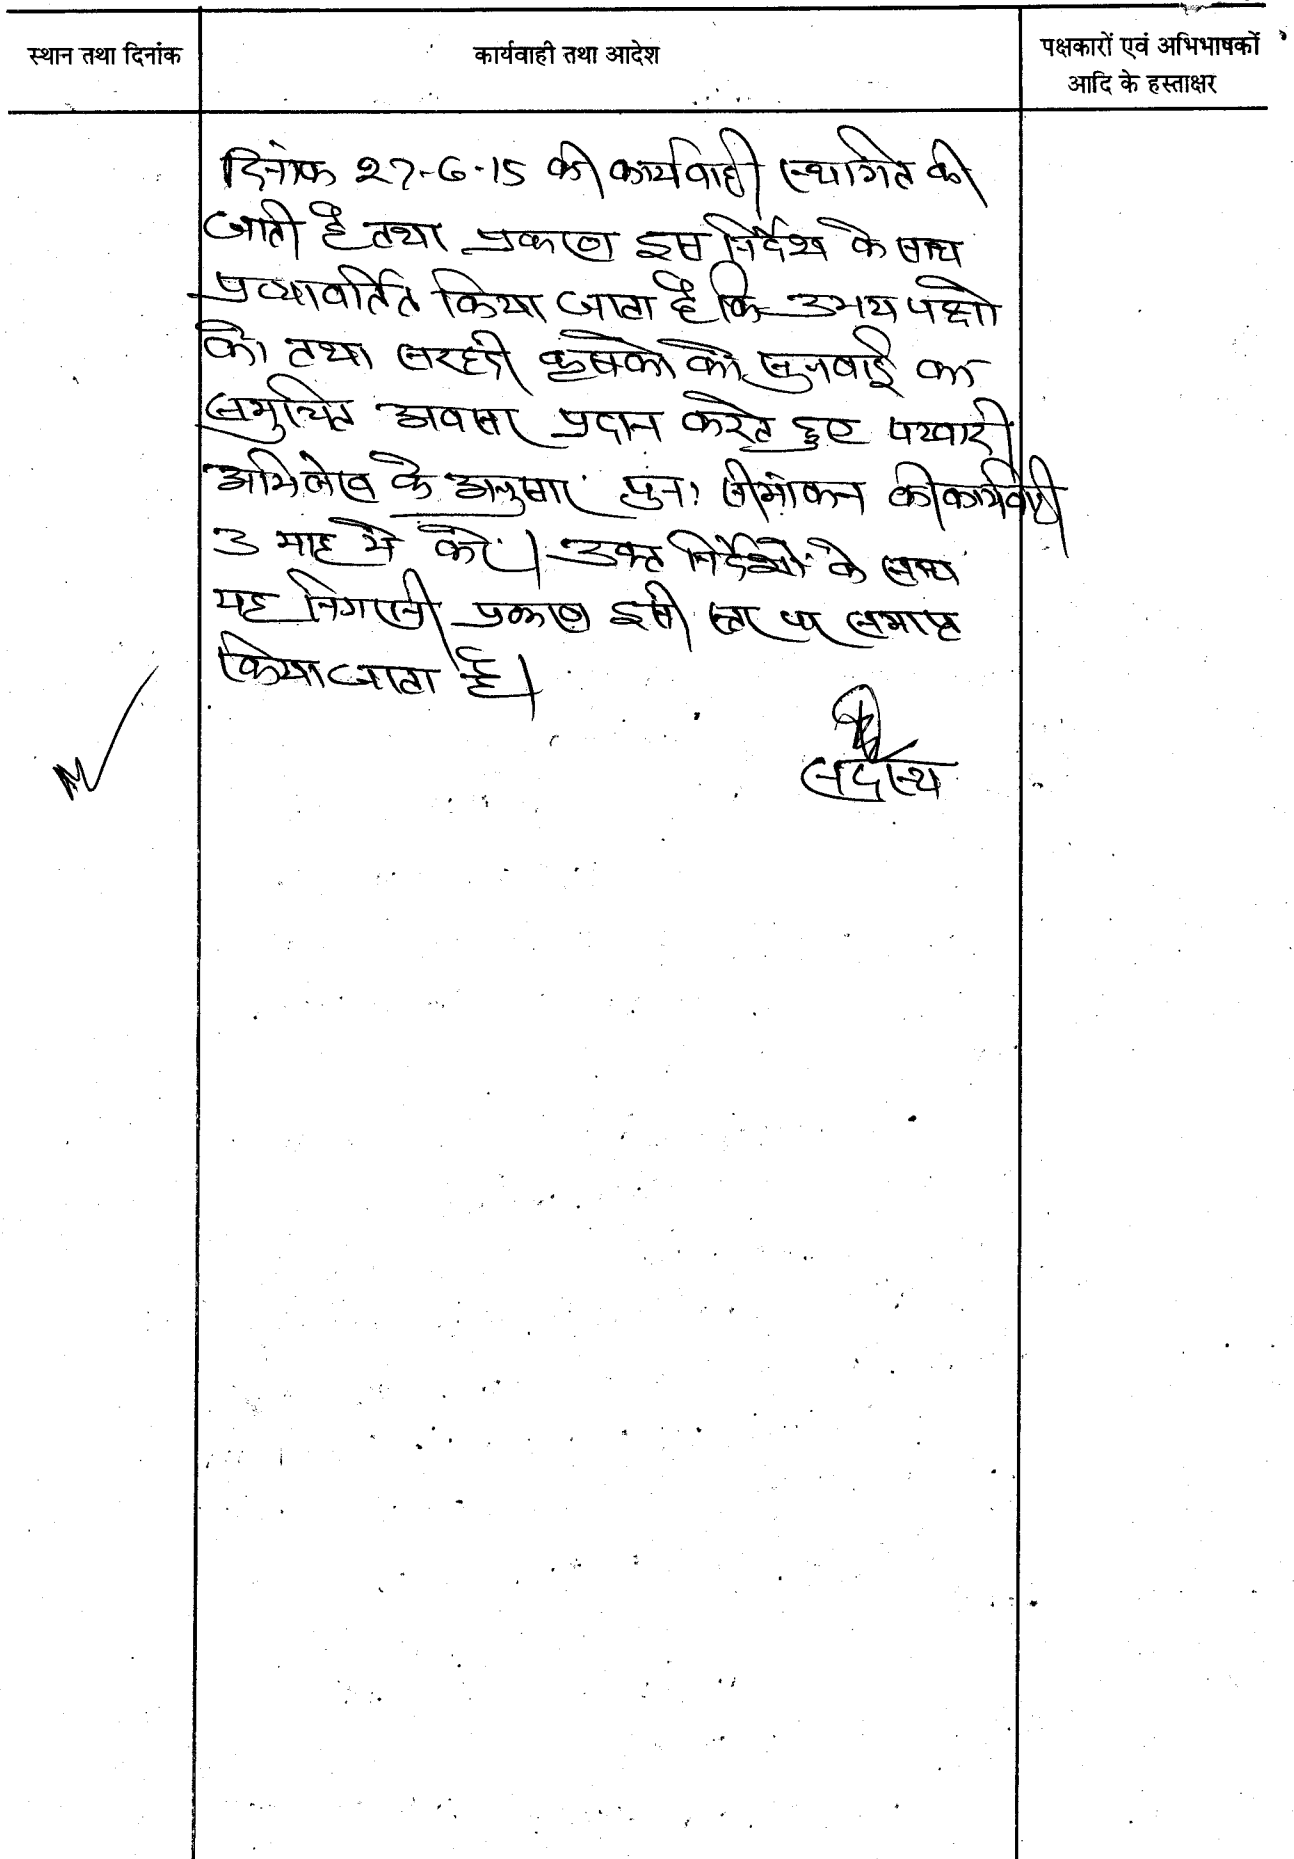 स्थान तथा दिनांक
कार्यवाही तथा आदेश
पक्षकारों एवं अभिभाषकों
आदि के हस्ताक्षर
दिनांक 27-6-15 की कार्यवाही स्थगित की
जाती है तथा प्रकरण इस निर्देश के साथ
प्रत्यावर्तित किया जाता है कि उभय पक्षो
को तथा सरहदी कृषको को सुनवाई का
समुचित अवसर प्रदान करते हुए पटवारी
अभिलेख के अनुसार पुनः सीमांकन की कार्यवाही
3 माह मे करे। उक्त निर्देशों के साथ
यह निगरानी प्रकरण इसी स्तर पर समाप्त
किया जाता है।
सदस्य